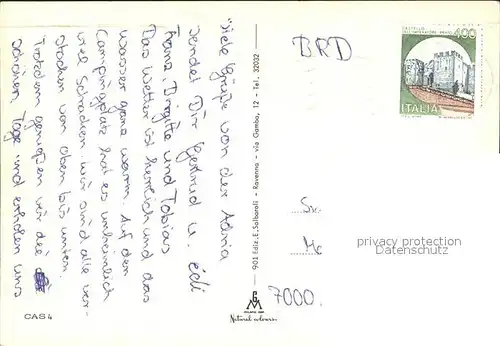 Viele Grüße von der Adria
sendet Dir Gertrud u. Edi
Franz, Brigitte und Tobias
Das Wetter ist herrlich und das
Wasser ganz warm. Auf dem
Campingplatz hat es unheimlich
viel Schnacken. Wir sind alle ver-
stochen von oben bis unten.
Trotzdem genießen wir die
schönen Tage und erholen uns
CAS 4
901 Ediz. E. Salbaroli - Ravenna - via Gamba, 12 - Tel. 32032
MILANO
Natural colours
BRD
400
ITALIA
7000.
privacy protection
Datenschutz